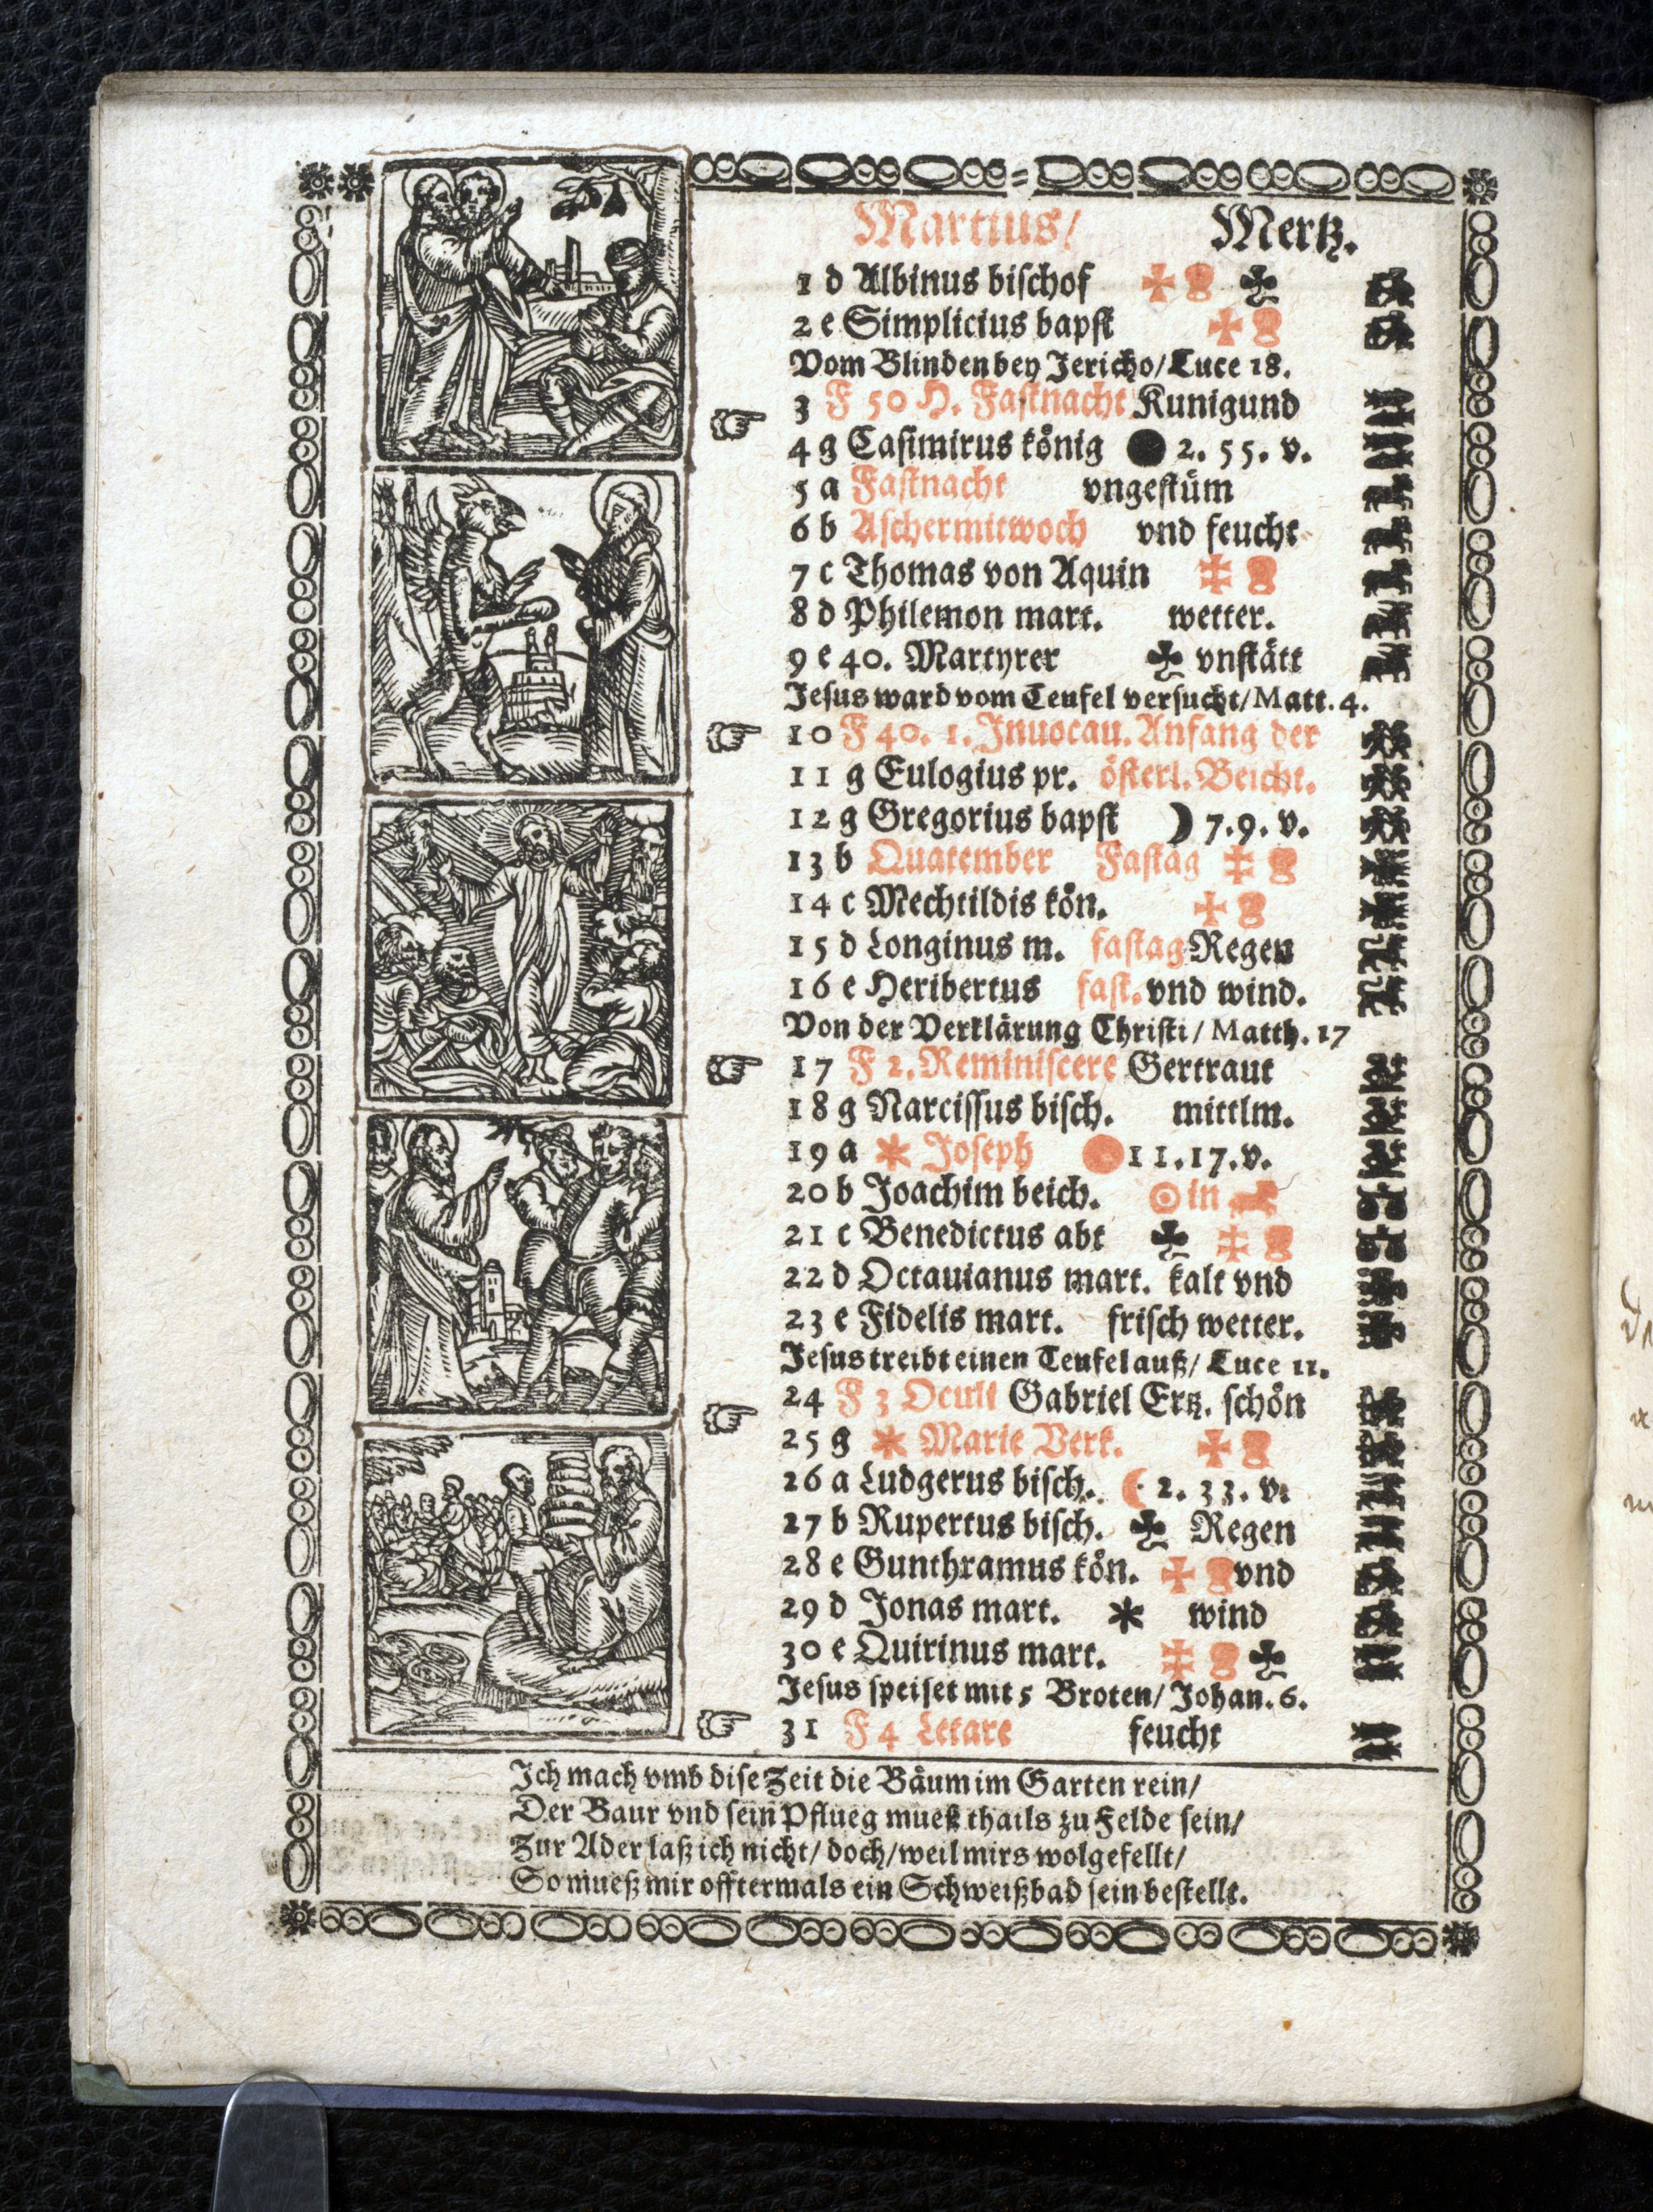 Martius/ Mertz.
1 d Albinus bischof
2 e Simplicius bapst
Vom Blinden bey Jericho/ Luce 18.
3 F 50 H. Fastnacht Kunigund
4 g Casimirus könig 2. 55. v.
5 a Fastnacht vngestüm
6 b Aschermitwoch vnd feucht
7 c Thomas von Aquin
8 d Philemon mart. wetter.
9 e 40. Martyrer vnstätt
Jesus ward vom Teufel versucht/ Matt. 4.
10 F 40. 1. Inuocau. Anfang der
11 g Eulogius pr. österl. Beicht.
12 g Gregorius bapst 7. 9. v.
13 b Quatember Fastag
14 c Mechtildis kön.
15 d Longinus m. fastag Regen
16 e Heribertus fast. vnd wind.
Von der Verklärung Christi/ Matth. 17
17 F 2. Reminiscere Gertraut
18 g Narcissus bisch. mittlm.
19 a * Joseph 11. 17. v.
20 b Joachim beich. ☉ in
21 c Benedictus abt
22 d Octauianus mart. kalt vnd
23 e Fidelis mart. frisch wetter.
Jesus treibt einen Teufel auß/ Luce 11.
24 F 3 Oculi Gabriel Ertz. schön
25 g * Marie Verk.
26 a Ludgerus bisch. 2. 33. v.
27 b Rupertus bisch. Regen
28 e Gunthramus kön. vnd
29 d Jonas mart. * wind
30 e Quirinus mart.
Jesus speiset mit 5 Broten/ Johan. 6.
31 F 4 Letare feucht
Ich mach vmb dise Zeit die Bäum im Garten rein/
Der Baur vnd sein Pflueg mueß thails zu Felde sein/
Zur Ader laß ich nicht/ doch/ weil mirs wolgefellt/
So mueß mir offtermals ein Schweißbad sein bestellt.